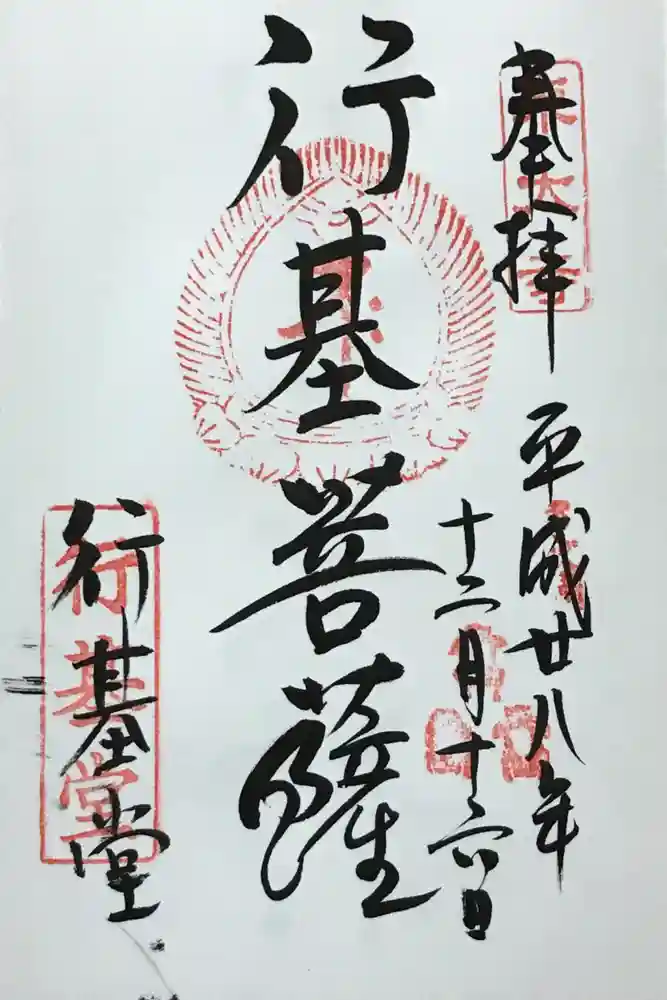 奉拝
東大寺
平成廿八年
十二月十六日
行基菩薩
行基堂
行基堂